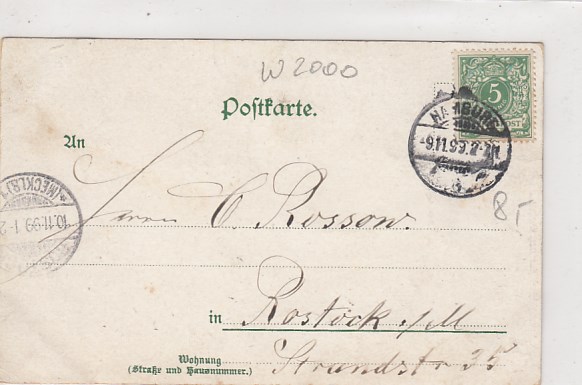 W 2000
5
Postkarte.
HAMBURG
9.11.99.
An
8,-
(MECKLB)
10.11.99 1-2
Herrn C. Rossow.
in Rostock i/M
Wohnung
(Straße und Hausnummer.)
Strandstr 35